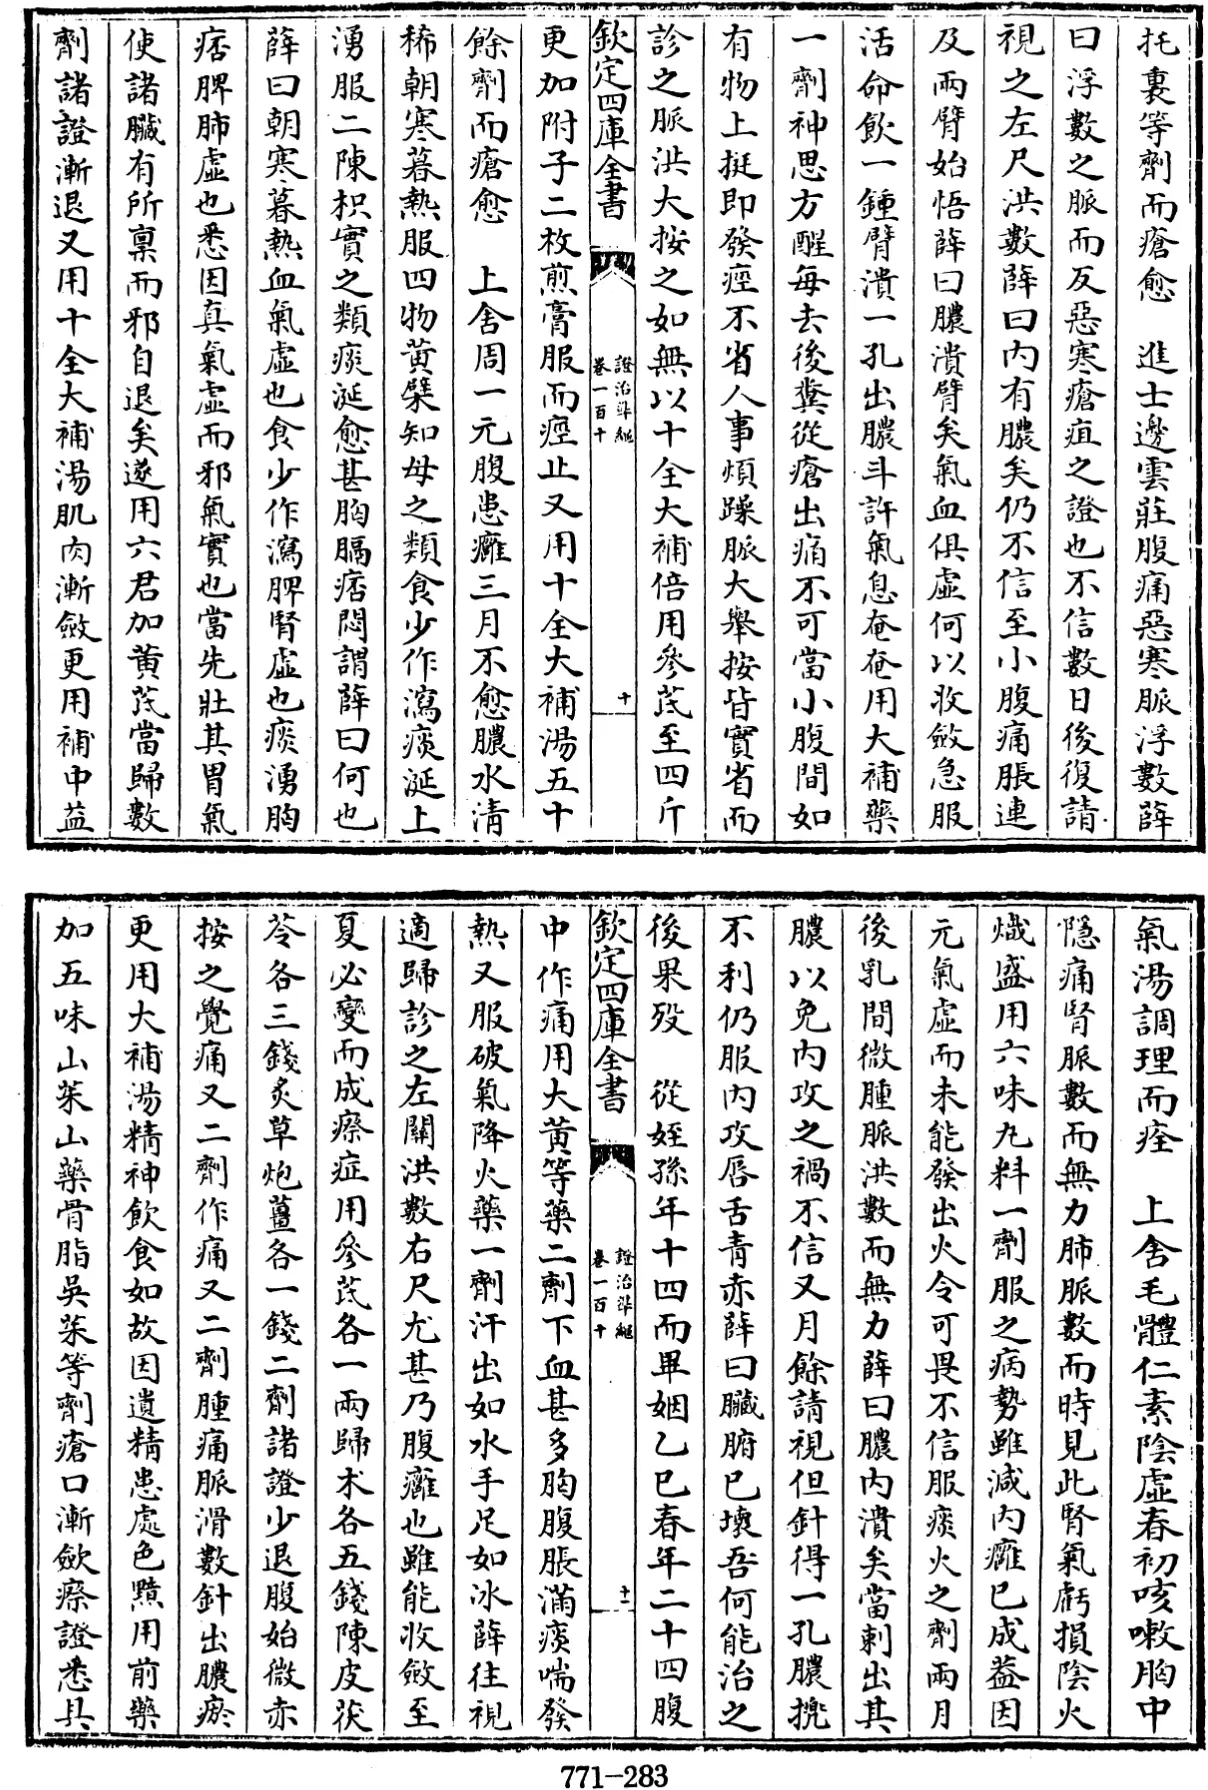 托裏等劑而瘡愈　進士邊雲莊腹痛惡寒脈浮數薛
曰浮數之脈而反惡寒瘡疽之證也不信數日後復請
視之左尺洪數薛曰內有膿矣仍不信至小腹痛脹連
及兩臂始悟薛曰膿潰臂矣氣血俱虛何以收斂急服
活命飲一鍾臂潰一孔出膿斗許氣息奄奄用大補藥
一劑神思方醒每去後糞從瘡出痛不可當小腹間如
有物上挺即發痙不省人事煩躁脈大舉按皆實省而
診之脈洪大按之如無以十全大補倍用參芪至四斤
欽定四庫全書
證治準繩
卷一百十
十
更加附子二枚煎膏服而痙止又用十全大補湯五十
餘劑而瘡愈　上舍周一元腹患癰三月不愈膿水清
稀朝寒暮熱服四物黃蘗知母之類食少作瀉痰涎上
湧服二陳枳實之類痰涎愈甚胸膈痞悶謂薛曰何也
薛曰朝寒暮熱血氣虛也食少作瀉脾腎虛也痰湧胸
痞脾肺虛也悉因真氣虛而邪氣實也當先壯其胃氣
使諸臟有所稟而邪自退矣遂用六君加黃芪當歸數
劑諸證漸退又用十全大補湯肌肉漸斂更用補中益
氣湯調理而痊　上舍毛體仁素陰虛春初咳嗽胸中
隱痛腎脈數而無力肺脈數而時見此腎氣虧損陰火
熾盛用六味丸料一劑服之病勢雖減內癰已成葢因
元氣虛而未能發出火令可畏不信服痰火之劑兩月
後乳間微腫脈洪數而無力薛曰膿內潰矣當刺出其
膿以免內攻之禍不信又月餘請視但針得一孔膿擁
不利仍服內攻唇舌青赤薛曰臟腑已壞吾何能治之
後果歿　從姪孫年十四而畢姻乙巳春年二十四腹
欽定四庫全書
證治準繩
卷一百十
十一
中作痛用大黃等藥二劑下血甚多胸腹脹滿痰喘發
熱又服破氣降火藥一劑汗出如水手足如冰薛往視
適歸診之左關洪數右尺尤甚乃腹癰也雖能收斂至
夏必變而成瘵症用參芪各一兩歸朮各五錢陳皮茯
苓各三錢炙草炮薑各一錢二劑諸證少退腹始微赤
按之覺痛又二劑作痛又二劑腫痛脈滑數針出膿瘀
更用大補湯精神飲食如故因遺精患處色黯用前藥
加五味山茱山藥骨脂吳茱等劑瘡口漸斂瘵證悉具
771-283